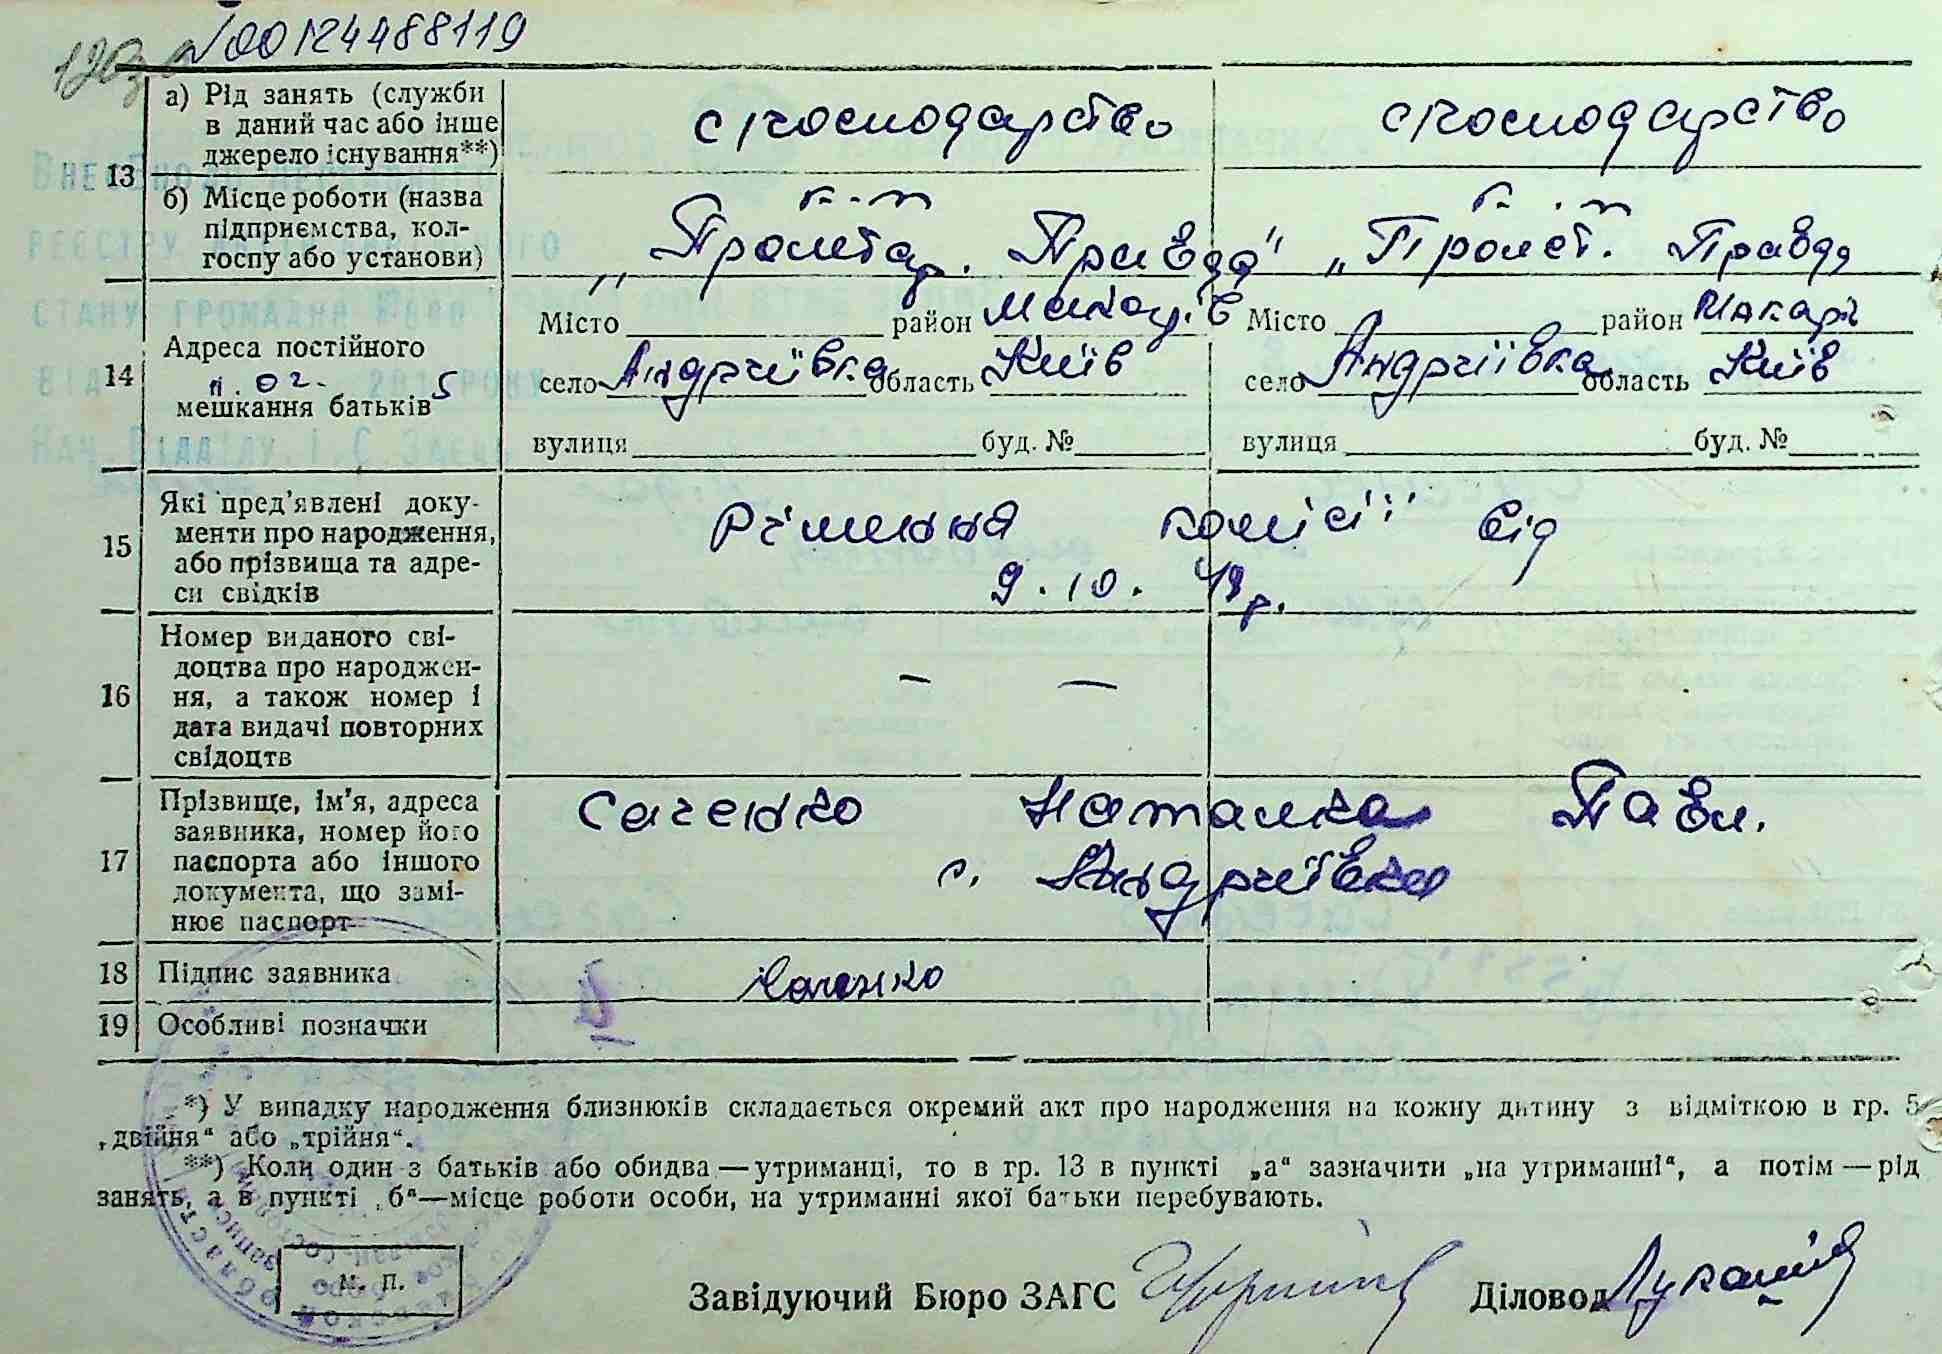 №00124488119
13
а) Рід занять (служби
в даний час або інше
джерело існування**)
с господарство
с господарство
б) Місце роботи (назва
підприємства, кол-
госпу або установи)
к-т
„Пролетар. Правда“
к-т
„Пролет. Правда
ВНЕСЕНО ДО ДЕРЖАВНОГО
РЕЄСТРУ АКТІВ ЦИВІЛЬНОГО
СТАНУ ГРОМАДЯН
ВІД 11.02. 2015 РОКУ
НАЧ. ВІДДІЛУ І.С. ЗАЄЦЬ
14
Адреса постійного
мешкання батьків
Місто район Макарів
село Андріївка область Київ
вулиця буд. №
Місто район Макарів
село Андріївка область Київ
вулиця буд. №
15
Які пред’явлені доку-
менти про народження,
або прізвища та адре-
си свідків
Рішення комісії від
9. 10. 49 р.
16
Номер виданого сві-
доцтва про народжен-
ня, а також номер і
дата видачі повторних
свідоцтв
— —
17
Прізвище, ім’я, адреса
заявника, номер його
паспорта або іншого
документа, що замі-
нює паспорт
Саченко Наталка Павл.
с. Андріївка
18
Підпис заявника
Саченко
19
Особливі позначки
*) У випадку народження близнюків складається окремий акт про народження на кожну дитину з відміткою в гр. 5
„двійня“ або „трійня“.
**) Коли один з батьків або обидва — утриманці, то в гр. 13 в пункті „а“ зазначити „на утриманні“, а потім — рід
занять, а в пункті „б“ — місце роботи особи, на утриманні якої батьки перебувають.
М. П.
Завідуючий Бюро ЗАГС
Діловод